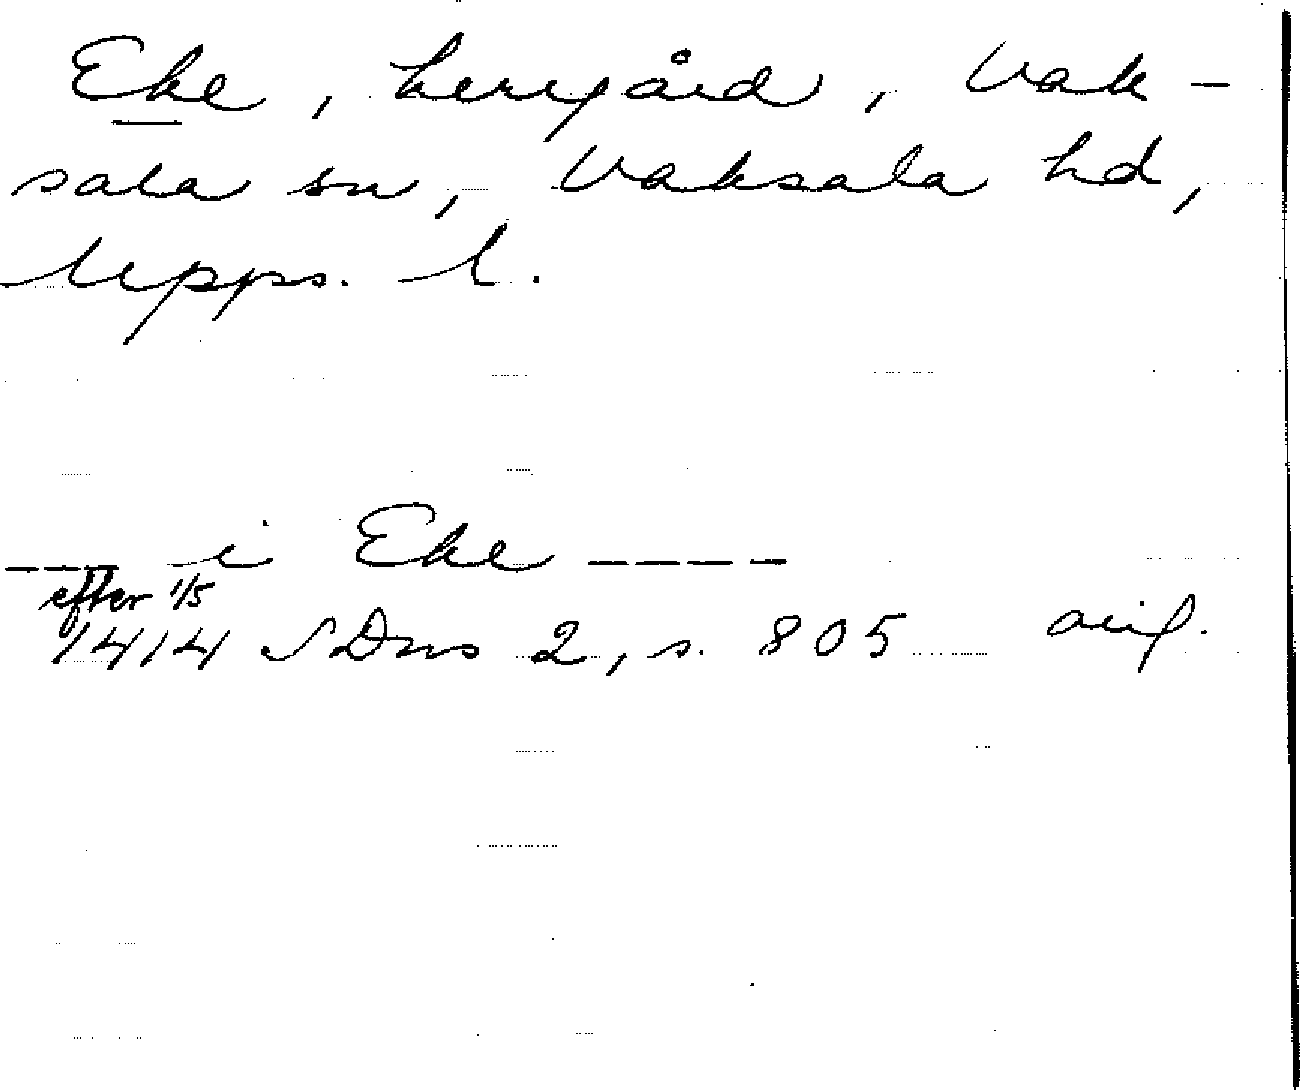 Eke, herrgård, Vak-
sala sn, Vaksala hd,
Upps. l.
--- i Eke ----
efter 1/5
1414 SDns 2, s. 805 avig.